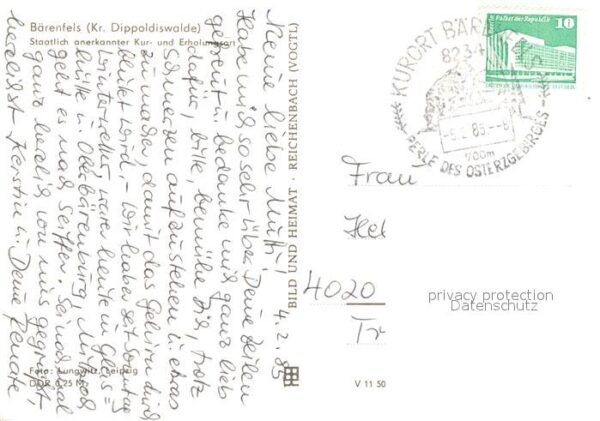 Bärenfels (Kr. Dippoldiswalde)
Staatlich anerkannter Kur- und Erholungsort
4.2.85
Meine liebe Mutti!
Habe mich so sehr über Deine Zeilen
gefreut u. bedanke mich ganz lieb
dafür, bitte, bemühe Dich, trotz
Schmerzen aufzustehen u. etwas
zu machen, damit das Gehirn durch=
blutet wird. - Wir haben seit Sonntag
Winterwetter, waren heute in Glas=
hütte u. Oberbärenburg, Mittwoch
geht es nach Seiffen. Sei nochmal
ganz herzlich von uns gegrüßt,
herzlichst Kerstin u. Deine Renate
Foto: Lungwitz, Leipzig
DDR 0,25 M
BILD UND HEIMAT · REICHENBACH (VOGTL)
V 11 50
KURORT BÄRENFELS
8234
-5.2.85.--8
700m
PERLE DES OSTERZGEBIRGES
Palast der Republik
10
Frau
Hel
4020
Tr
privacy protection
Datenschutz